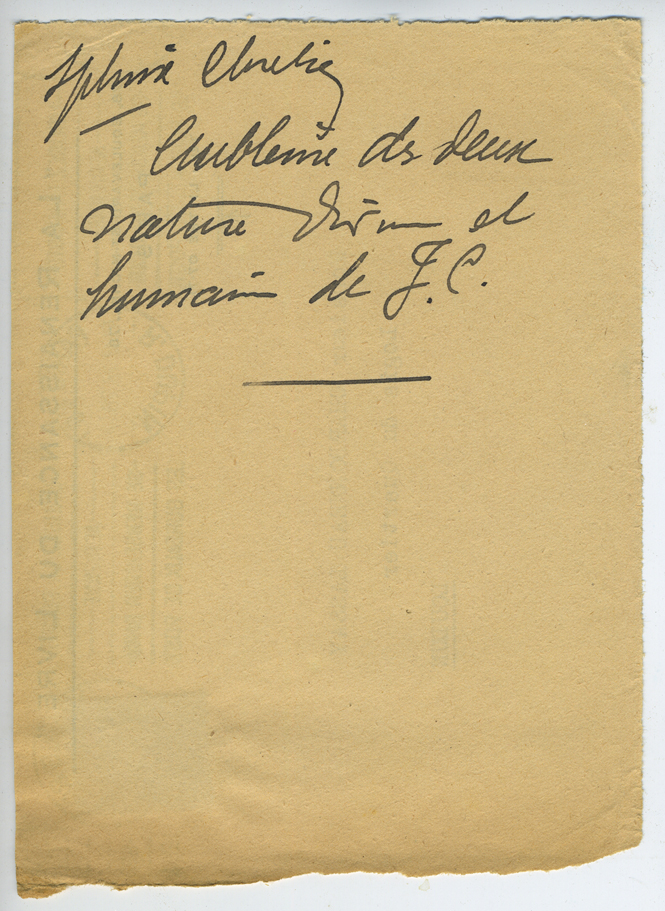 Sphinx Chrétien
Emblème des deux
nature divine et
humaine de J. C.